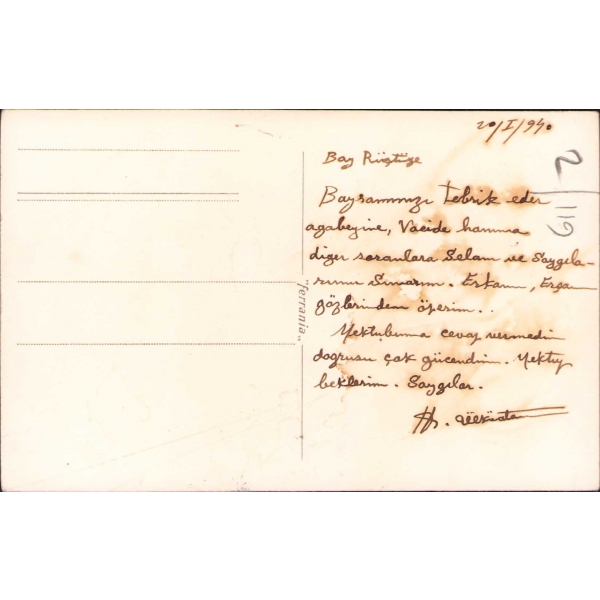 20/I/940
Bay Rüştüye
Bayramınızı tebrik eder
agabeyine, Vacide hanıma
diğer soranlara Selam ve Saygıla-
rımı Sunarım. Erkanı,
gözlerinden öperim..
Mektubuma cevap vermedin
doğrusu çok gücendim. Mektup
beklerim. Saygılar.
2/119
"Ferrania"